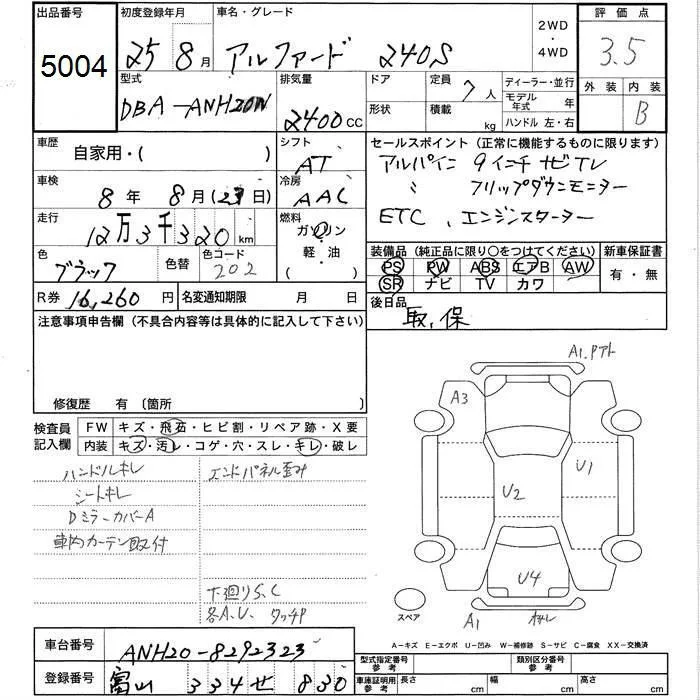 出品番号 初度登録年月 車名・グレード 2WD ・ 4WD 評価点
5004 25 8月 アルファード 240S 3.5
型式 排気量 ドア 定員 7人 ディーラー・並行 外装 内装
DBA-ANH20W 2400cc 形状 積載 kg モデル年式 年 B
ハンドル 左・右
車歴 自家用・( ) シフト AT セールスポイント(正常に機能するものに限ります)
アルパイン 9インチナビTV
車検 8年 8月(23日) 冷房 AAC 〃 フリップダウンモニター
走行 12万3千320km 燃料 ガソリン ETC、エンジンスターター
軽・油 ( )
装備品(純正品に限り○をつけてください) 新車保証書
色 ブラック 色替 色コード 202 PS PW ABS エアB AW 有・無
SR ナビ TV カワ
R券 16,260円 名変通知期限 月 日 後日品
取、保
注意事項申告欄(不具合内容等は具体的に記入して下さい)
修復歴 有(箇所
検査員記入欄 FW キズ・飛石・ヒビ割・リペア跡・X要
内装 キズ・汚レ・コゲ・穴・スレ・キレ・破レ
ハンドルキレ エンドパネル歪み
シートキレ
DミラーカバーA
車内カーテン取付
下廻りS、C
各A.U、タッチP
A1.Pアト
A3
U1
U2
U4
スペア A1
A-キズ E-エクボ U-凹み W-補修跡 S-サビ C-腐食 XX-交換済
車台番号 ANH20-8292323
型式指定番号 参考 類別区分番号 参考
登録番号 富山 334せ 830
車庫証明用参考 長さ cm 幅 cm 高さ cm